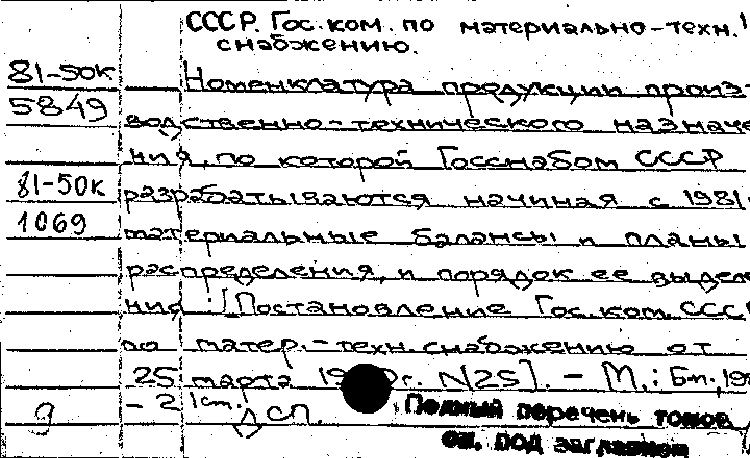 СССР. Гос. ком. по материально-техн.
снабжению.
81-50К Номенклатура продукции произ-
5849 водственно-технического назначе
ния, по которой Госснабом СССР
81-50К разрабатываются начиная с 1981
1069 материальные балансы и планы
распределения, и порядок ее выделе
ния : [Постановление Гос. ком. СССР
по матер.-техн. снабжению от
25 марта г. N25]. - М.: Б.и.,
- 2 сп. Полный перечень томов
см. под заглавием